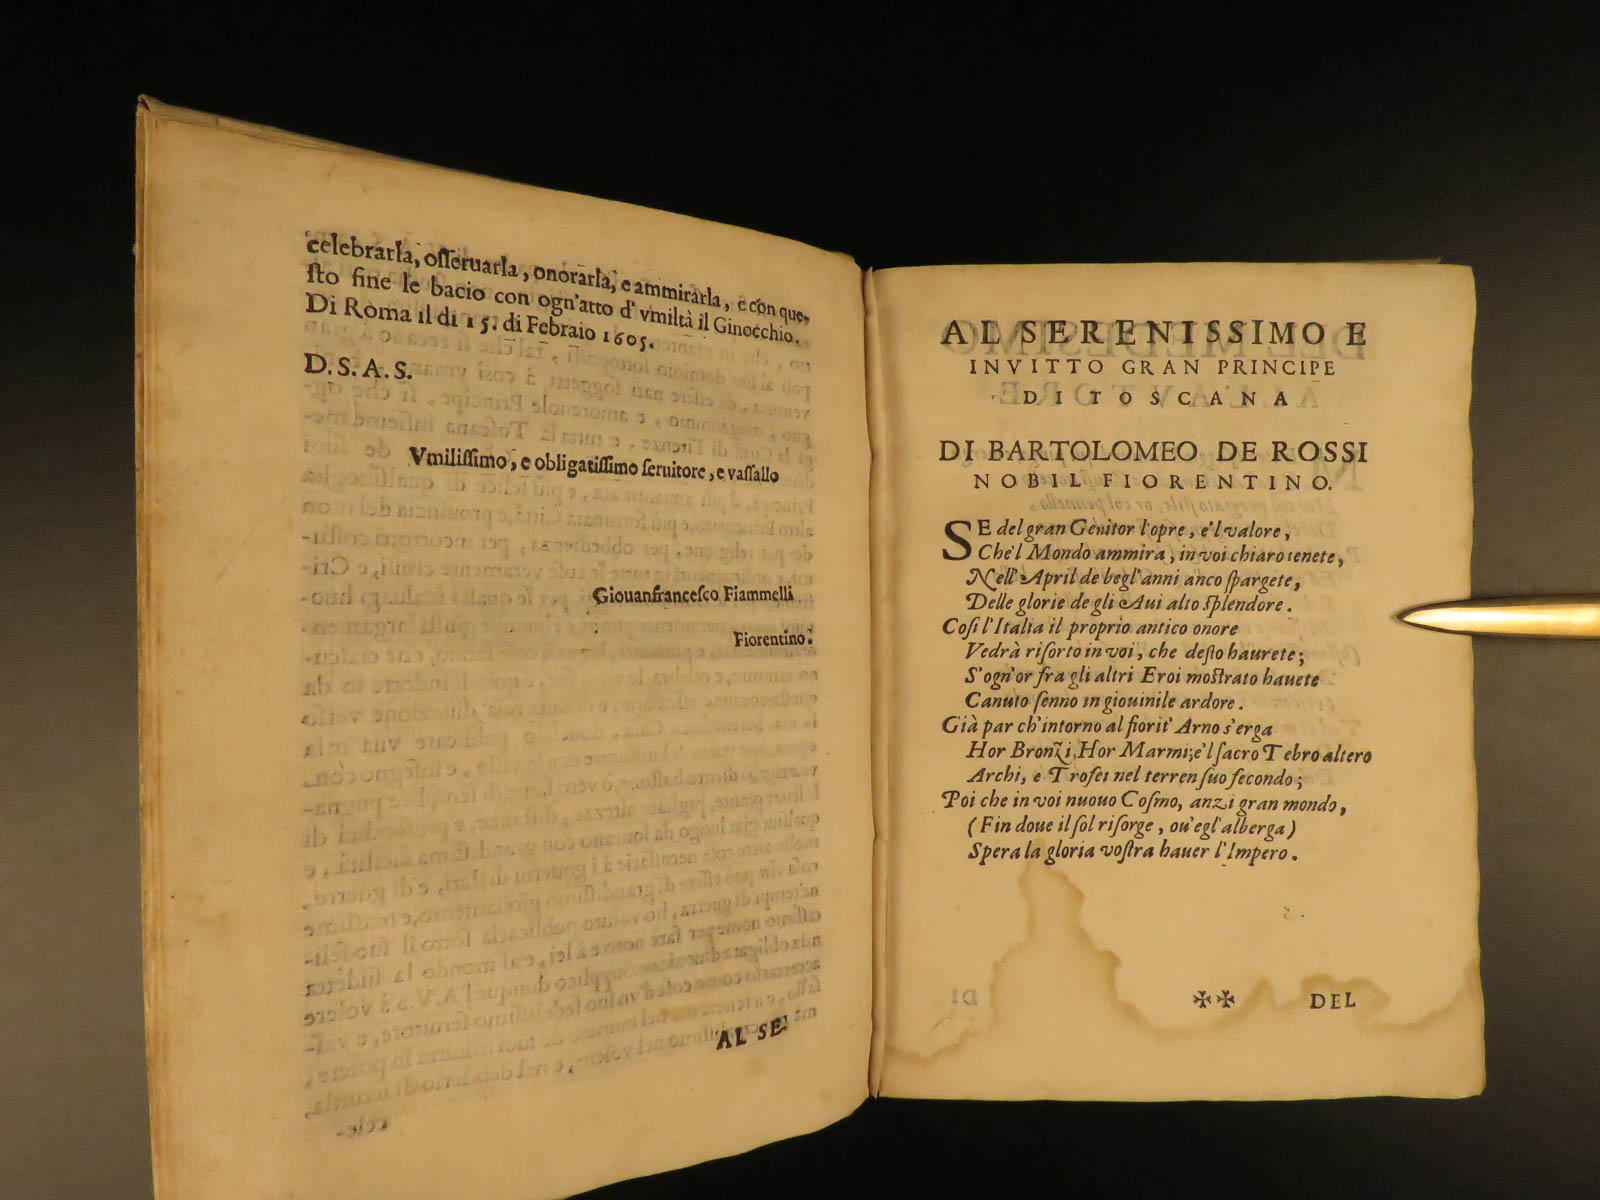 celebrarla, osseruarla, onorarla, e ammirarla, e con que-
sto fine le bacio con ogn'atto d'vmiltà il Ginocchio.
Di Roma il di 15. di Febraio 1605.
D. S. A. S.
Vmilissimo, e obligatissimo seruitore, e vassallo
Giouanfrancesco Fiammelli
Fiorentino.
AL SE-
AL SERENISSIMO E
INVITTO GRAN PRINCIPE
DI TOSCANA
DI BARTOLOMEO DE ROSSI
NOBIL FIORENTINO.
SE del gran Genitor l'opre, e'l valore,
Che'l Mondo ammira, in voi chiaro tenete,
Nell'April de begl'anni anco spargete,
Delle glorie de gli Aui alto splendore.
Cosi l'Italia il proprio antico onore
Vedrà risorto in voi, che desto haurete;
S'ogn'or fra gli altri Eroi mostrato hauete
Canuto senno in giouinile ardore.
Già par ch'intorno al fiorit' Arno s'erga
Hor Bronzi, Hor Marmi; e'l sacro Tebro altero
Archi, e Trofei nel terren suo fecondo;
Poi che in voi nuouo Cosmo, anzi gran mondo,
(Fin doue il sol risorge, ou'egl'alberga)
Spera la gloria vostra hauer l'Impero.
✠✠ DEL